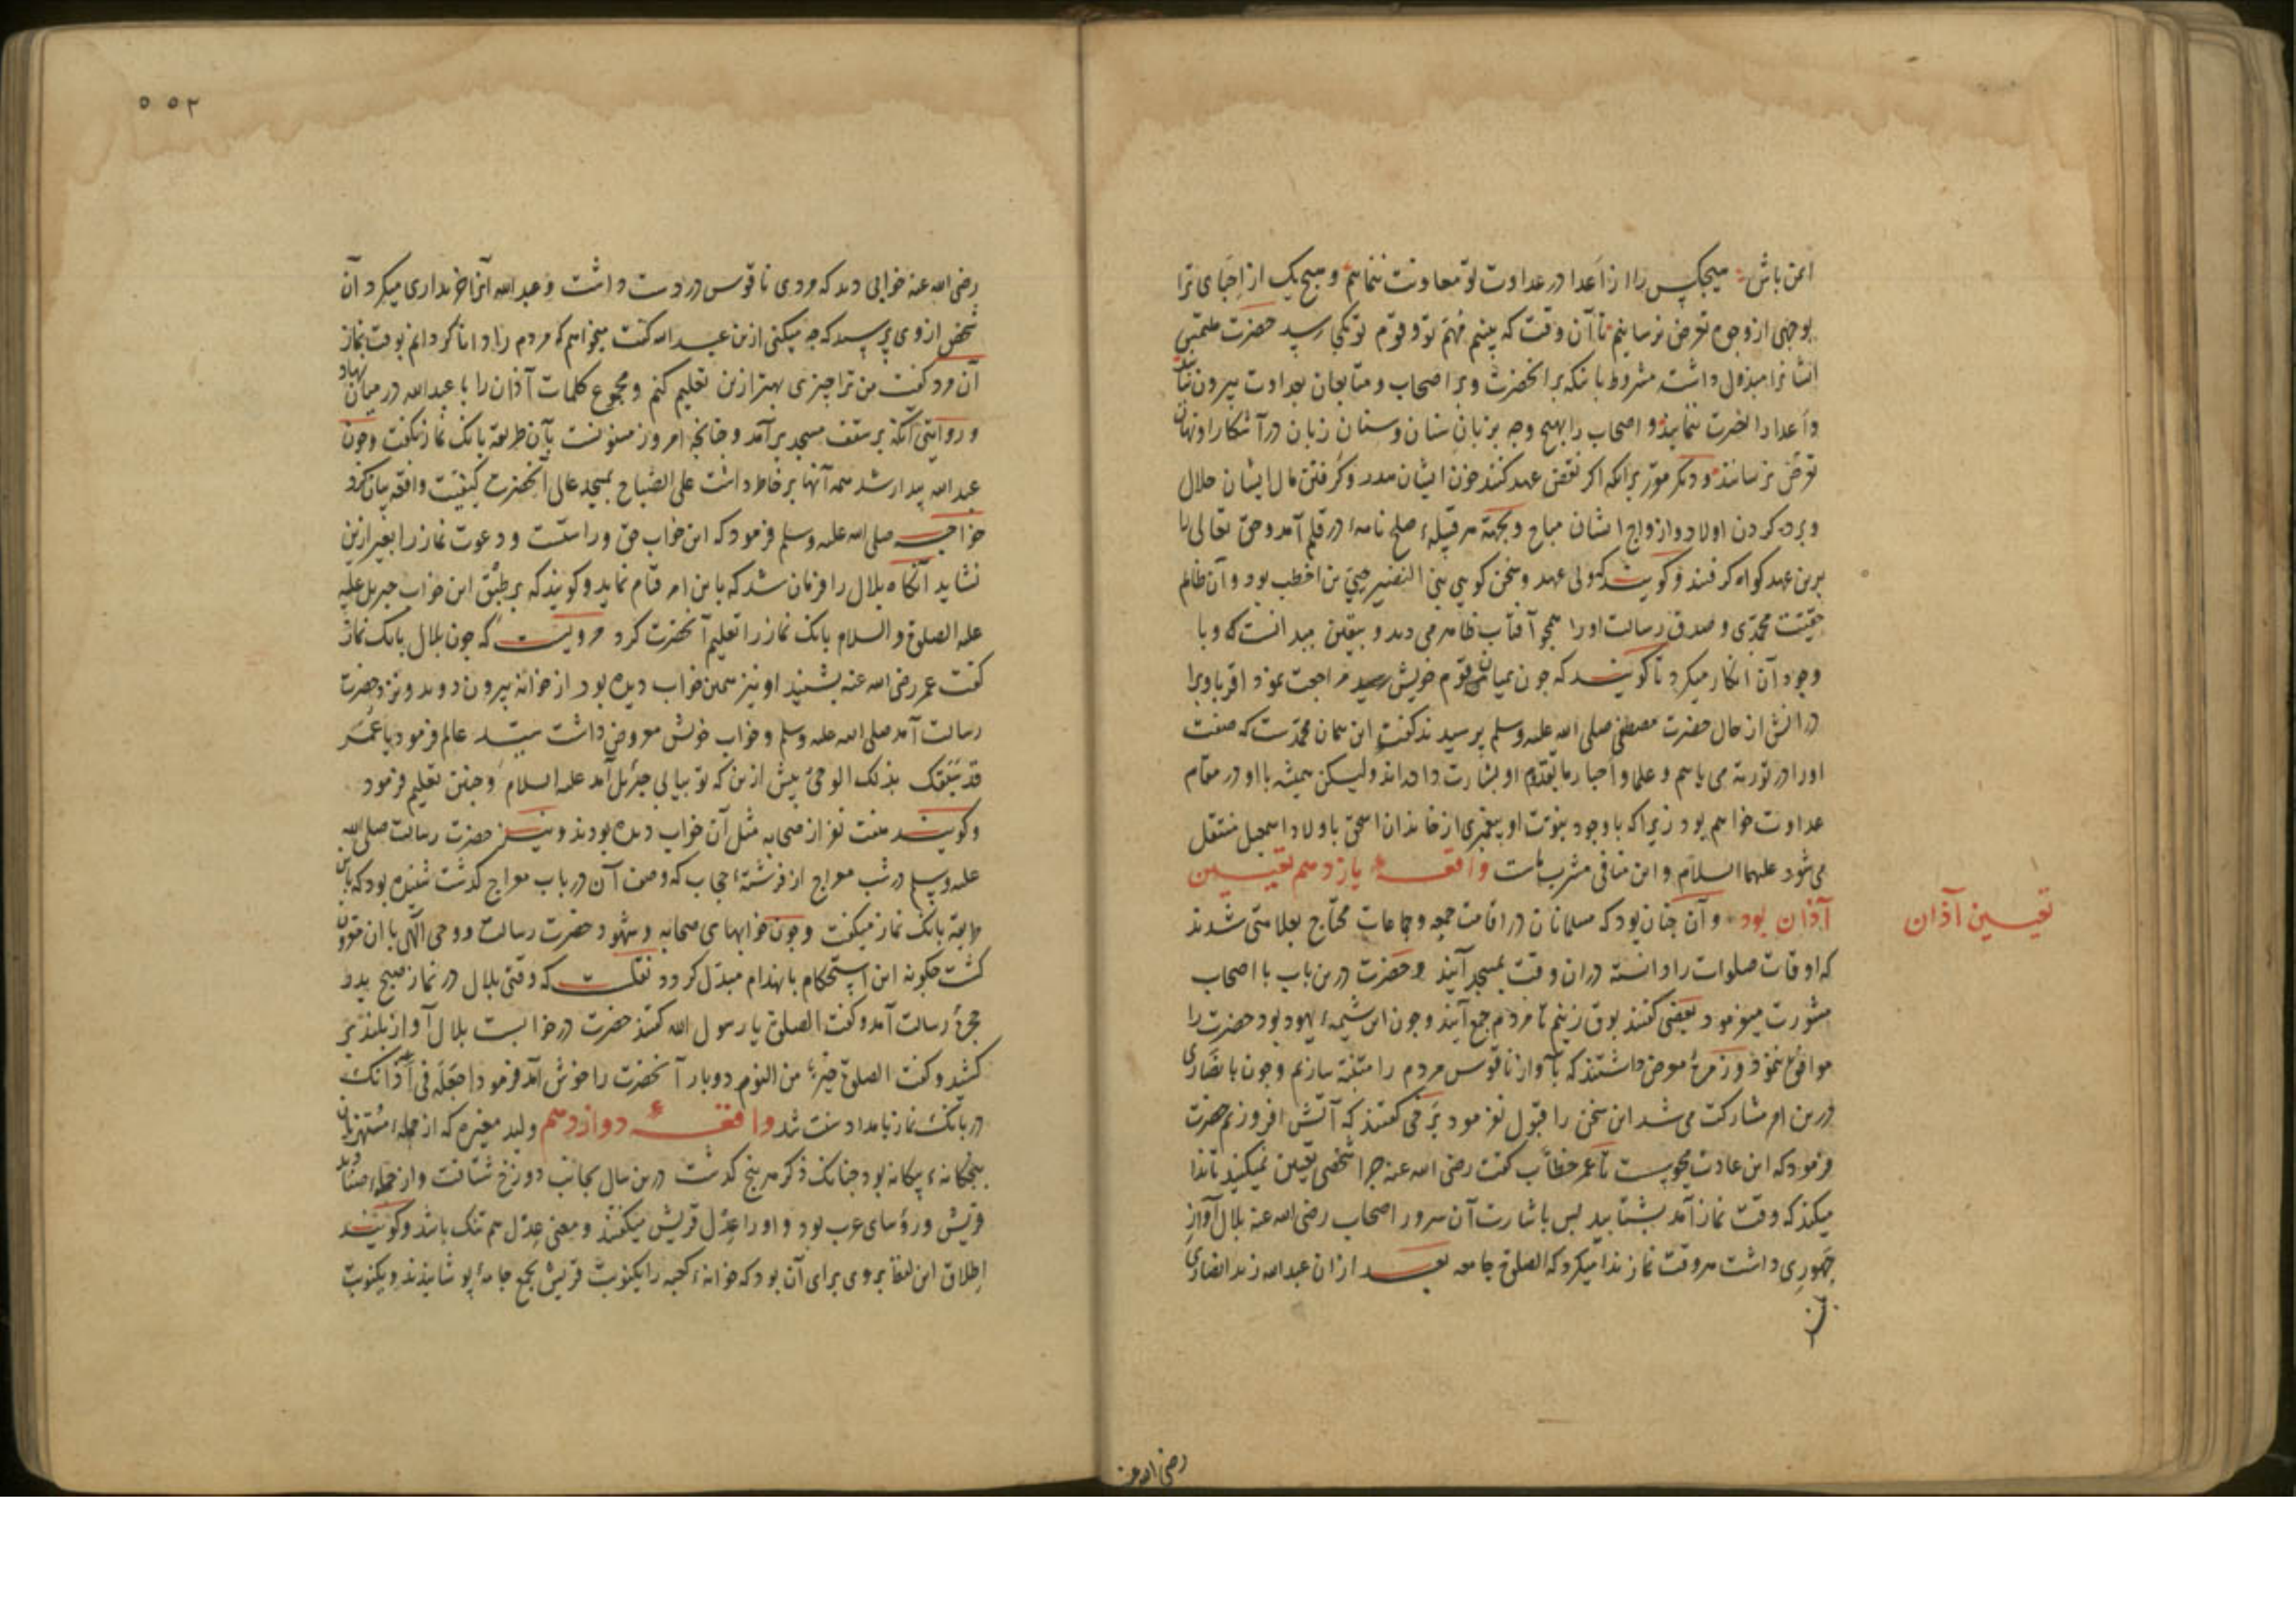 ایمن باش هیچکس را از اعدا در عداوت تو معاونت ننمایم و هیچ یک از احبای ترا
بوجهی از وجوه تعرض نرسانیم تا آن وقت که ببینیم مهم تو و قوم تو بکجا رسید حضرت ملتمس
ایشانرا مبذول داشت مشروط بآنکه بر آنحضرت و بر اصحاب و متابعان بعداوت بیرون نیایند
و اعدا را نصرت ننمایند و اصحاب را بهیچ وجه بزبان سنان و سنان زبان در آشکارا و نهان
تعرض نرسانند و دیگر مقرر برآنکه اگر نقض عهد کنند خون ایشان هدر و گرفتن مال ایشان حلال
و برده کردن اولاد و ازواج ایشان مباح و بجهة هر قبیلهٔ صلح نامهٔ در قلم آمد و حق تعالی را
برین عهد گواه گرفتند و گویند که ولی عهد و سخن گوی بنی النضیر حیی بن اخطب بود و آن ظالم
حقیقت محمدی و صدق رسالت او را همچو آفتاب ظاهر می دید و بیقین میدانست که وبا
وجود آن انکار میکرد تا گویند که چون بمیان قوم خویش مراجعت نمود اقربا ویرا
در از حال حضرت مصطفی صلی الله علیه وسلم پرسیدند گفت این همان محمدست که صفت
او را در توریة می یابیم و علما و احبار ما تقدم او بشارت داده اند ولیکن همیشه با او در مقام
عداوت خواهیم بود زیرا که با وجود نبوت او پیغمبری از خاندان اسحق باولاد اسمعیل منتقل
می شود علیهما السلام و این منافی مشرب ماست واقعهٔ یازدهم تعیین
آذان بود و آن چنان بود که مسلمانان در اقامت جمعه و جماعات محتاج بعلامتی شدند
که اوقات صلوات را دانسته در آن وقت بمسجد آیند و حضرت درین باب با اصحاب
مشورت میفرمود بعضی گفتند بوق زنیم تا مردم جمع آیند و چون این شیمهٔ یهود بود حضرت را
موافق ننمود و زمرهٔ معروض داشتند که بآواز ناقوس مردم را متنبه سازیم و چون با نصاری
درین امر مشارکت می شد این سخن را قبول نفرمود برخی گفتند که آتش افروزیم حضرت
فرمود که این عادت مجوسست تا عمر خطاب گفت رضی الله عنه چرا شخصی تعیین نمیکنید تا ندا
میکند که وقت نماز آمد بشتابید پس باشارت آن سرور اصحاب رضی الله عنه بلال آواز
جهوری داشت هر وقت نماز ندا میکرد که الصلوة جامعه بعد از آن عبدالله زید انصاری
تعیین آذان
رضی الله عنه
۵۵۲
رضی الله عنه خوابی دید که مردی ناقوس در دست داشت و عبد الله آنرا خریداری میکرد آن
شخص از وی پرسید که چه میکنی ازین عبد الله گفت میخواهم که مردم را دانا گردانم بوقت نماز
آن مرد گفت من ترا چیزی بهتر ازین تعلیم کنم و مجموع کلمات آذان را با عبدالله در میان نهاد
و روایتی آنکه بر سقف مسجد برآمد و چنانچه امروز مسنونست بآن طریقه بانک نماز بگفت و چون
عبد الله بیدار شد همه آنها بر خاطر داشت علی الصباح بمسجد عالی آنحضرت کیفیت واقعه بیان کرد
خواجه صلی الله علیه وسلم فرمود که این خواب حق و راستست و دعوت نماز را بغیر ازین
نشاید آنکاه بلال را فرمان شد که باین امر قیام نماید و گویند که بر طبق این خواب جبریل علیه
علیه الصلوة والسلام بانک نماز را تعلیم آنحضرت کرد مرویست که چون بلال بانک نماز
گفت عمر رضی الله عنه بشنید او نیز همین خواب دیده بود از خوانه بیرون دوید و نزد حضرت
رسالت آمد صلی الله علیه وسلم و خواب خویش معروض داشت سید عالم فرمود یا عمر
قد سبقک بذلک الوحی پیش ازین که تو بیایی جبرئیل آمد علیه السلام و چنین تعلیم فرمود
و گویند هفت نفر از صحابه مثل آن خواب دیده بودند و نیز حضرت رسالت صلی الله
علیه وسلم در شب معراج از فرشتهٔ حجاب که وصف آن در باب معراج گذشت شنیده بود که باین
طریقه بانک نماز میگفت و چون خوابهای صحابه و شهود حضرت رسالت و وحی الهی با آن مقرون
گشت چگونه این استحکام بانهدام مبدل گردد نقلست که وقتی بلال در نماز صبح بدر
حجرهٔ رسالت آمد و گفت الصلوة یا رسول الله گفتند حضرت در خوابست بلال آواز بلند بر
کشید و گفت الصلوة خیر من النوم دوبار آنحضرت را خوش آمد فرمود اجعله فی آذانک
در بانک نماز بامداد سنت شد واقعهٔ دوازدهم ولید مغیره که از جملهٔ مستهزیان
پنجکانهٔ بیکانه بود چنانک ذکر هر پنج گذشت درین سال بجانب دوزخ شتافت و از جملهٔ صنادید
قریش و رؤسای عرب بود و او را عدل قریش میگفتند و معنی عدل هم تنک باشد و گویند
اطلاق این لفظ بروی برای آن بود که خوانهٔ کعبه را یکنوبت قریش بجمع جامهٔ پوشانیدند و یکنوبت